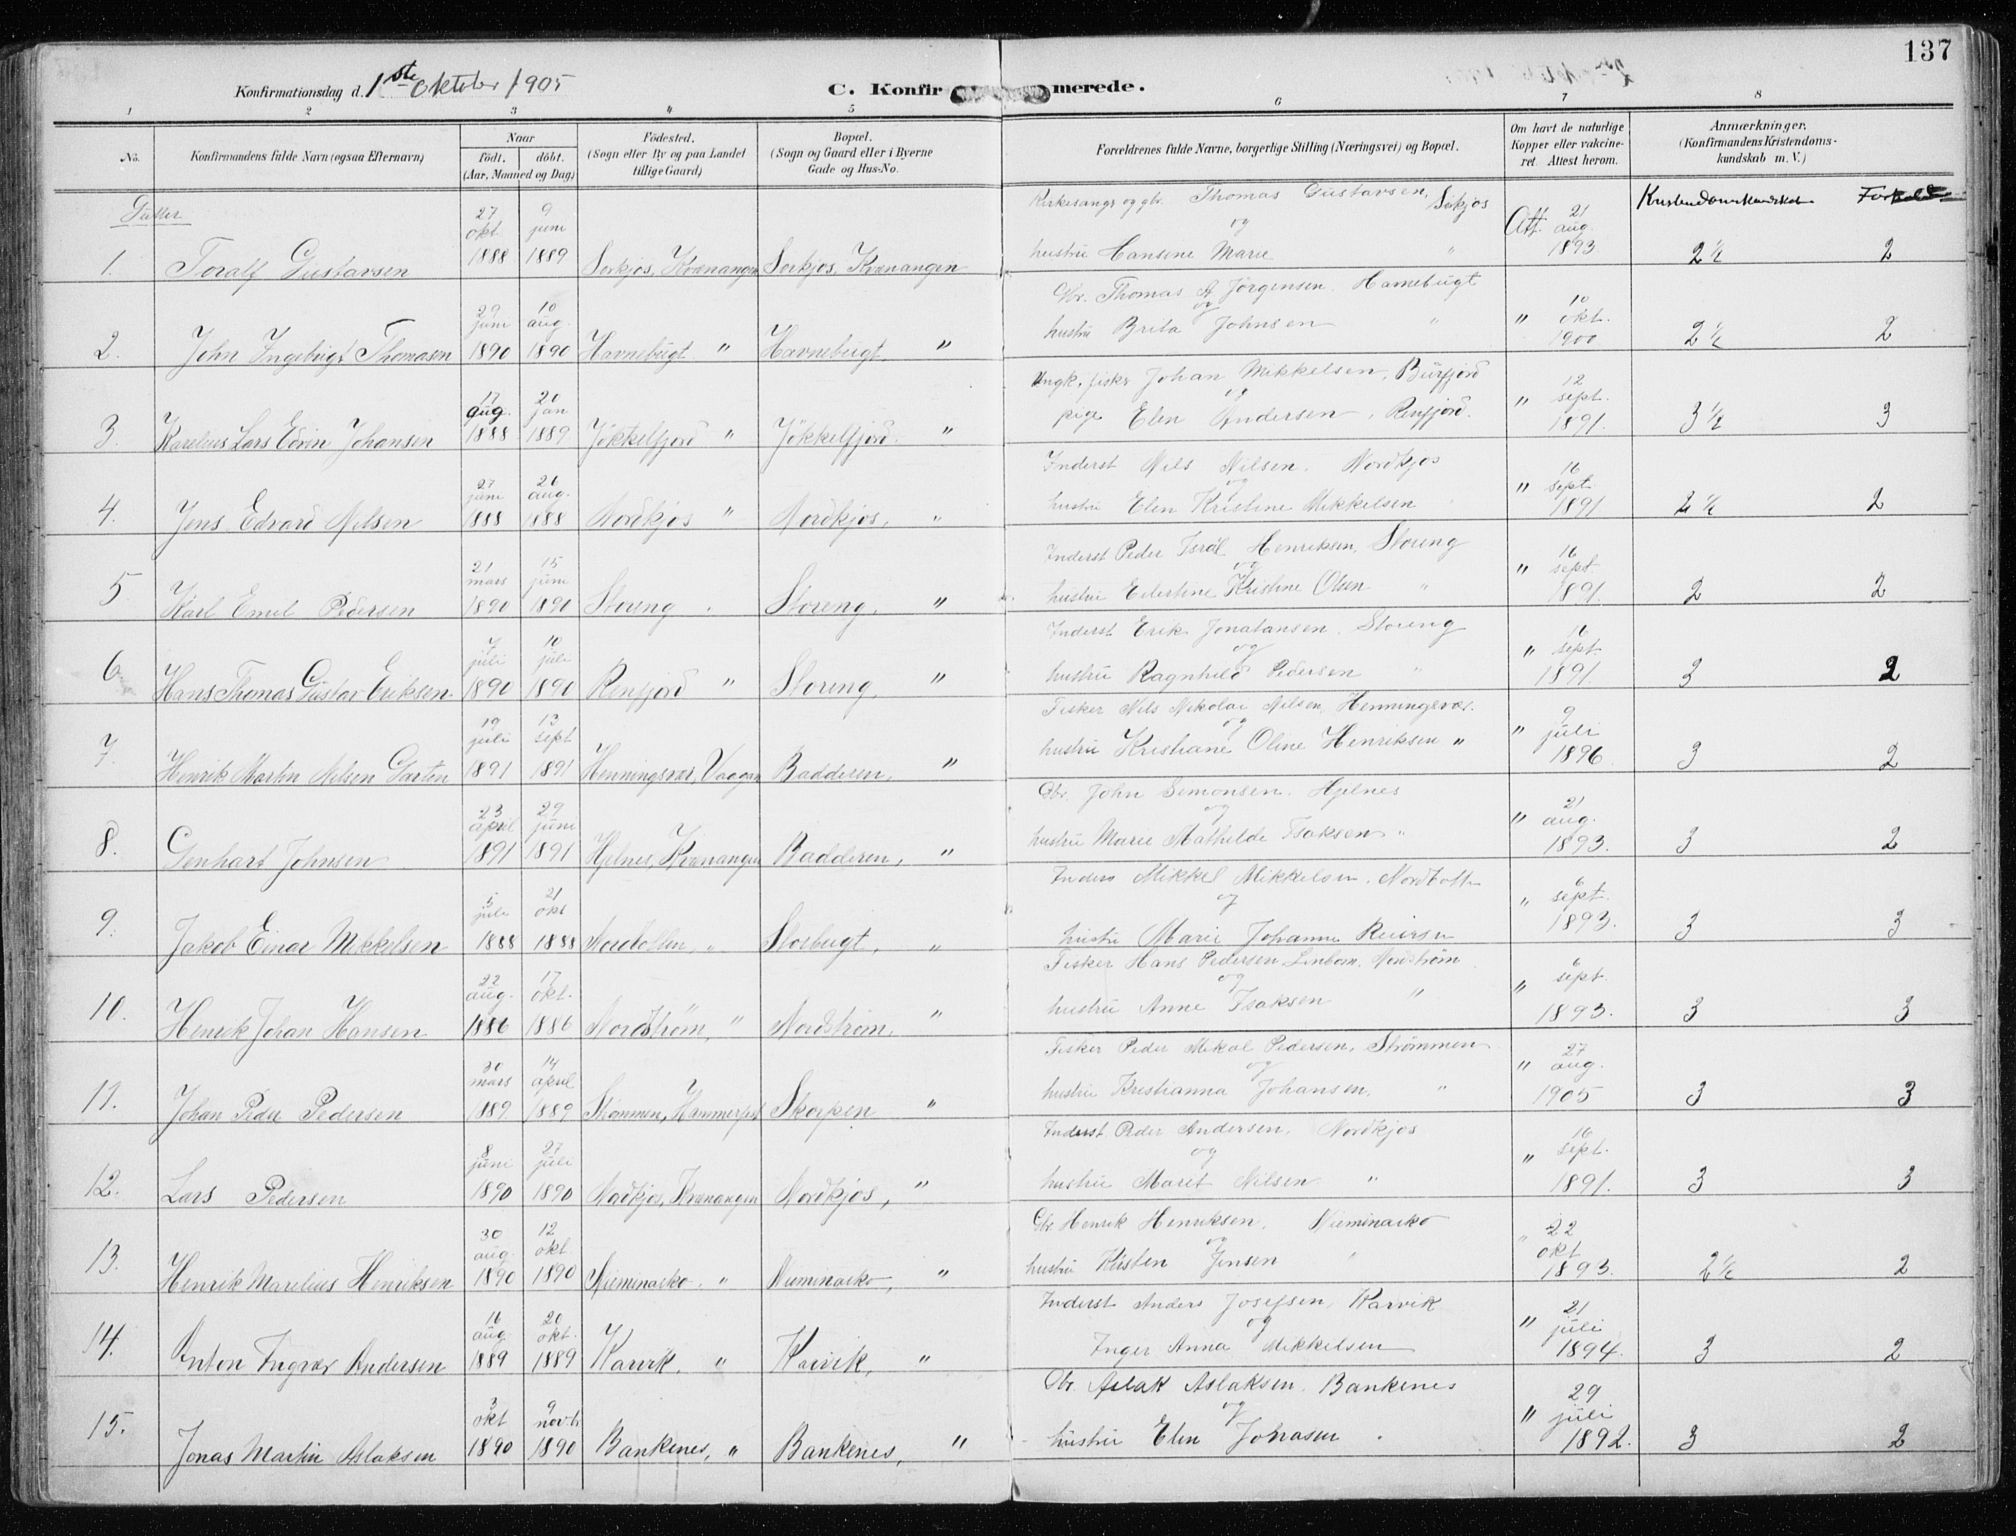 137
Konfirmationsdag d. 1ste Oktober 1905
C. Konfirmerede.
1 2 3 4 5 6 7 8
No.
Konfirmandens fulde Navn (ogsaa Efternavn)
Naar
født. døbt.
(Aar, Maaned og Dag)
Fødested.
(Sogn eller By og paa Landet
tillige Gaard)
Bopæl.
(Sogn og Gaard eller i Byerne
Gade og Hus-No.
Forældrenes fulde Navne, borgerlige Stilling (Næringsvei) og Bopæl.
Om havt de naturlige
Kopper eller vakcine-
ret. Attest herom.
Anmærkninger.
(Konfirmandens Kristendoms-
kundskab m. V.)
Gutter
Kristendomskundskab
1. Toralf Gustavsen 27 okt. 1888 9 juni 1889 Sørkjos, Kvænangen Sørkjos, Kvænangen
Kirkesangr og gbr. Thomas Gustavsen, Sørkjos
og
hustru Hansine Marie "
Att. 21 aug. 1893 2½ 2
2. John Ingebrigt Thomasen 29 juni 1890 10 aug. 1890 Havnebugt " Havnebugt, "
Gbr. Thomas A Jørgensen. Havnebugt
og
hustru Brita Johnsen "
" 10 okt. 1900 2½ 2
3. Karelius Lars Edvin Johansen 17 aug. 1888 20 jan 1889 Jøkkelfjord " Jøkkelfjord. "
Ungk. fisker Johan Mikkelsen, Burfjord
og
pige Elen Andersen, Renfjord.
" 12 sept. 1891. 3½ 3
4. Jens Edvard Nilsen 27 juni 1888 26 aug. 1888 Nordkjos " Nordkjos, "
Inderst Nils Nilsen. Nordkjos
og
hustru Elen Kristine Mikkelsen "
" 16 sept. 1891 2½ 2
5 Karl Emil Pedersen 21 mars 1890 15 juni 1890 Storeng " Storeng, "
Inderst Peder Isräl Henriksen, Storeng
og
hustru Eilertine Kristine Olsen "
" 16 sept. 1891. 2 2
6 Hans Thomas Gustav Eriksen 7 juli 1890 10 juli 1890 Renfjord " Storeng, "
Inderst Erik Jonatansen. Storeng
og
hustru Ragnhild Pedersen "
" 16 sept 1891. 3 2
7 Henrik Martin Nilsen Garten 19 juli 1891 13 sept 1891 Henningsvær, Vaagan Badderen, "
Fisker Nils Nikolai Nilsen, Henningsvær.
og
hustru Kristiane Oline Henriksen "
" 9 juli 1896. 3 2
8. Genhart Johnsen 23 april 1891 29 juni 1891 Hjelnes, Kvænangen Badderen, "
Gbr. John Simonsen. Hjelnes
og
hustru Marie Mathilde Isaksen "
" 21 aug. 1893. 3 2
9. Jakob Einar Mikkelsen 5 juli 1888 21 okt 1888 Nordbotten, " Storbugt, "
Inders Mikkel Mikkelsen. Nordbotten
og
hustru Marie Johanne Reiersen
" 6 sept. 1893. 3 3
10. Henrik Johan Hansen 22 aug. 1886 17 okt. 1886 Nordstrøm, " Nordstrøm, "
Fisker Hans Pedersen Linbom. Nordstrøm
og
hustru Anne Isaksen "
" 6 sept. 1893. 3 3
11. Johan Peder Pedersen 30 mars 1889 14 april 1889 Strømmen, Hammerfest Skorpen "
Fisker Peder Mikal Pedersen, Strømmen
og
hustru Kristianna Johansen, "
" 27 aug. 1905 3 3
12. Lars Pedersen 8 juni 1890 27 juli 1890 Nordkjos, Kvænangen Nordkjos, "
Inderst Peder Andersen. Nordkjos
og
hustru Marit Nilsen "
" 16 sept. 1891. 3 3
13. Henrik Marelius Henriksen 30 aug. 1890 12 okt. 1890 Nieminaiko, " Nieminaiko, "
Gbr. Henrik Henriksen, Nieminaiko
og
hustru Kristen Jensen "
" 22 okt 1893. 2½ 2
14. Anton Ingvar Andersen 16 aug. 1889 20 okt. 1889 Karvik, " Karvik, "
Inderst Anders Josefsen, Karvik
og
Inger Anna Mikkelsen
" 21 juli 1894. 3 2
15. Jonas Martin Aslaksen 3 okt 1890 9 novb. 1890 Bankenes, " Bankenes, "
Gbr. Aslak Aslaksen. Bankenes
og
hustru Elen Johnasen "
" 29 juli 1892. 3 2